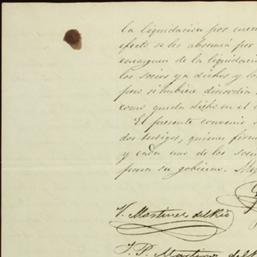 la liquidacion por cuen
efecto se les abonará por
encarguen de la liquidació
los socios ya dichos y los
pero si hubiere discordia
como queda dicho en el a
El presente convenio,
dos testigos, quienes firma
y cada uno de los socio
para su gobierno. Mé
V. Martinez del Rio
J. P. Martinez del R